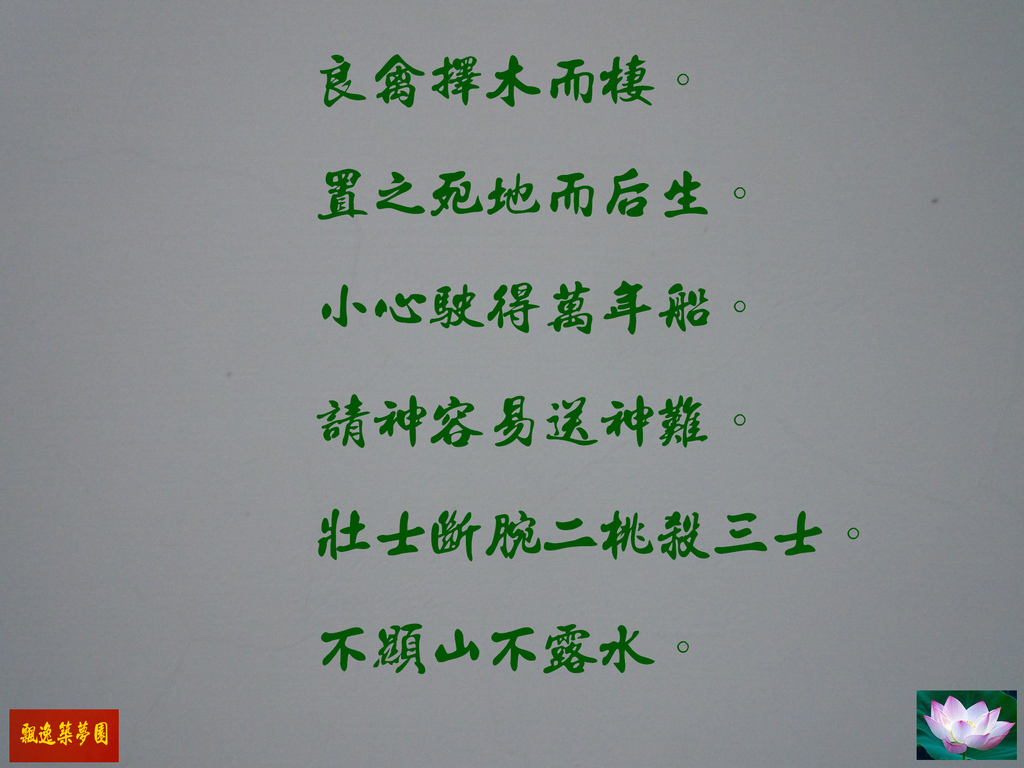 良禽擇木而棲。
置之死地而后生。
小心駛得萬年船。
請神容易送神難。
壯士斷腕二桃殺三士。
不顯山不露水。
飄逸築夢園